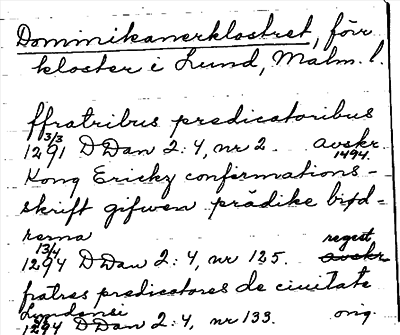 Dominikanerklostret, förr
kloster i Lund, Malm. l.
ffratribus predicatoribus
3/3
1291 DDan 2:4, nr 2. avskr. 1494.
Kong Ericky confirmations-
skrift gifwen prädike brød=
rema
13/4
1294 DDan 2:4, nr 125. regest avskr.
fratres predicatores de ciuitate
Lundensi
1294 DDan 2:4, nr 133. orig.